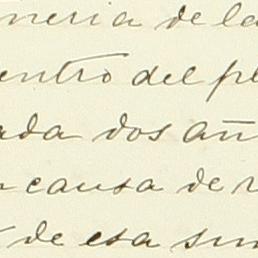 neria de la
entro del pl
ada dos añ
causa de
de esa sum